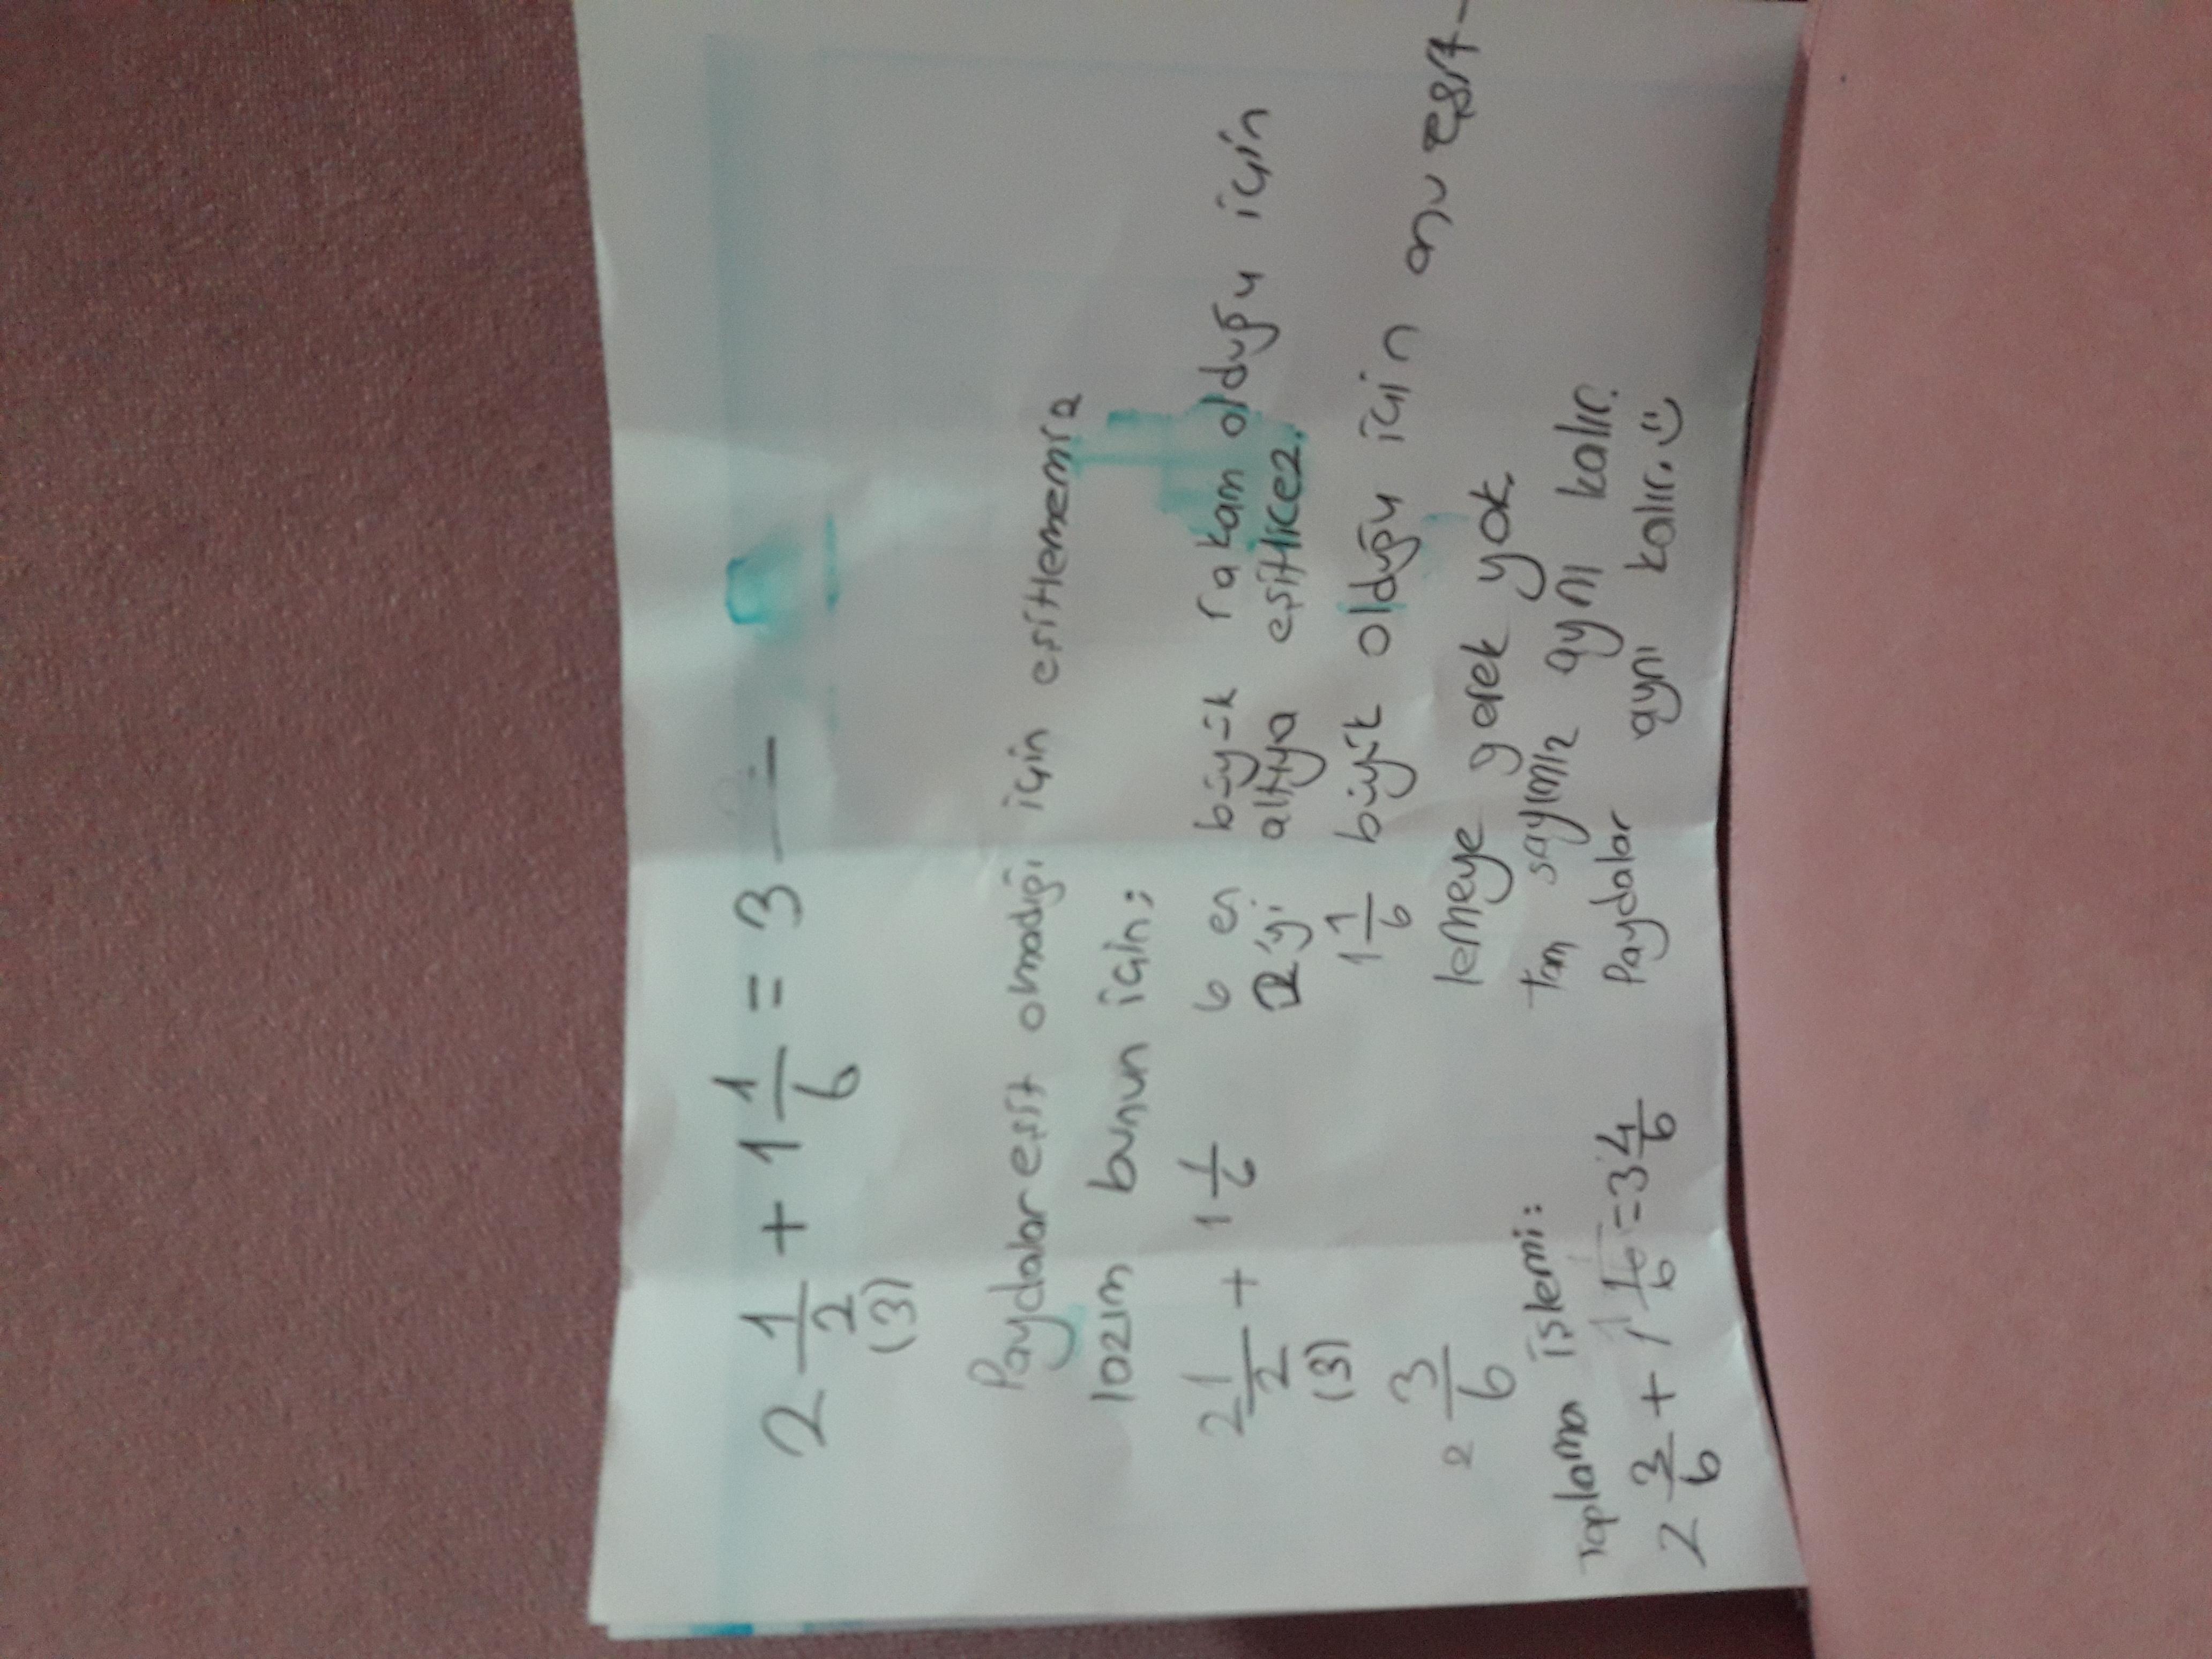 2 1/2 + 1 1/6 = 3 —
(3)
Paydalar eşit olmadığı için eşitlememiz
lazım bunun için:
2 1/2 + 1 1/6
(3)
2 3/6
6 en büyük rakam olduğu için
2'yi altıya eşitlicez.
1 1/6 büyük olduğu için onu eşit-
lemeye gerek yok.
tam sayımız aynı kalır.
Paydalar aynı kalır. ☺
Toplama işlemi:
2 3/6 + 1 1/6 = 3 4/6